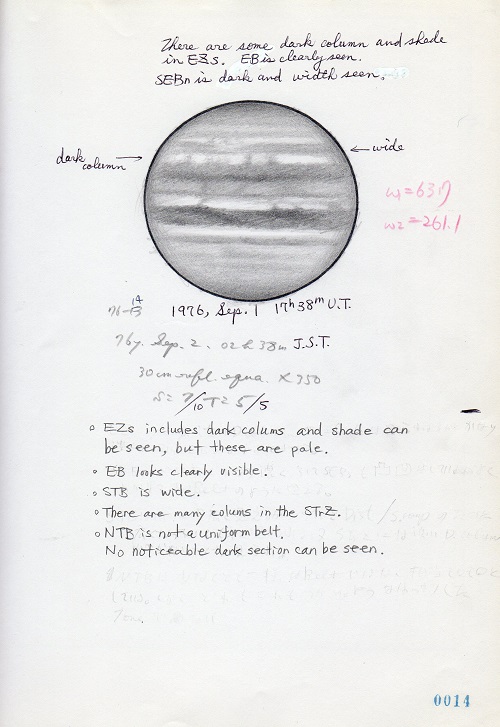 There are some dark column and shade
in EZs. EB is clearly seen.
SEBn is dark and width seen.
dark column
wide
ω1=63.7
ω2=261.1
76-13
14
1976, Sep. 1 17h 38m U.T.
76y. Sep. 2. 02h 38m J.S.T.
30cm refl. equa. ×350
S=7/10 T=5/5
EZs includes dark colums and shade can
be seen, but these are pale.
EB looks clearly visible.
STB is wide.
There are many colums in the STrZ.
NTB is not a uniform belt.
No noticeable dark section can be seen.
0014